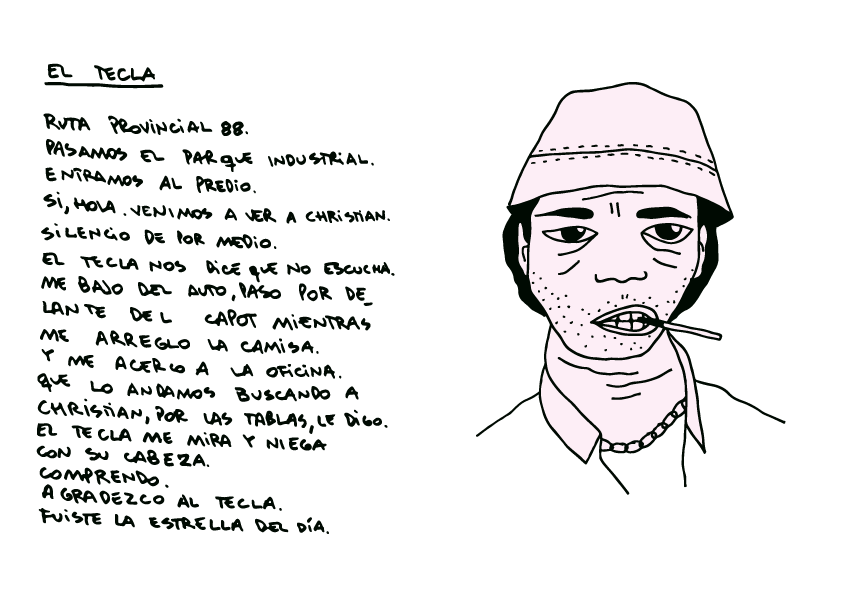 EL TECLA
RUTA PROVINCIAL 88.
PASAMOS EL PARQUE INDUSTRIAL.
ENTRAMOS AL PREDIO.
SI, HOLA. VENIMOS A VER A CHRISTIAN.
SILENCIO DE POR MEDIO.
EL TECLA NOS DICE QUE NO ESCUCHA.
ME BAJO DEL AUTO, PASO POR DE_
LANTE DEL CAPOT MIENTRAS
ME ARREGLO LA CAMISA.
Y ME ACERCO A LA OFICINA.
QUE LO ANDAMOS BUSCANDO A
CHRISTIAN, POR LAS TABLAS, LE DIGO.
EL TECLA ME MIRA Y NIEGA
CON SU CABEZA.
COMPRENDO.
AGRADEZCO AL TECLA.
FUISTE LA ESTRELLA DEL DÍA.